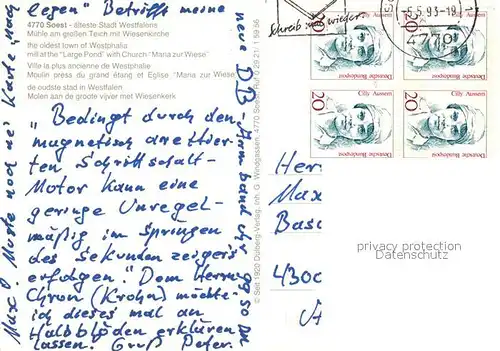 legen" Betrifft meine
neue DB-Armbanduhr
4770 Soest - älteste Stadt Westfalens
Mühle am großen Teich mit Wiesenkirche
the oldest town of Westphalia
mill at the "Large Pond" with Church "Maria zur Wiese"
Ville la plus ancienne de Westphalie
Moulin press du grand étang et Eglise "Maria zur Wiese"
de oudste stad in Westfalen
Molen aan de groote vijver met Wiesenkerk
"Bedingt durch den
magnetisch arretier-
ten Schrittschalt-
Motor kann eine
geringe Unregel-
mäßig im Springen
des Sekundenzeigers
erfolgen." Dem Herrn
Chron (Krohn) möchte
ich dieses mal an
Halbblöden erklären
lassen. Gruß Peter.
Max! Mußte noch ne' Karte nach
© Seit 1920 Dolberg-Verlag, Inh. G. Windgassen, 4770 Soest, Ruf 0 29 21 / 1 59 66
Schreib mal wieder.
-5.5.93-18
4770
20 Cilly Aussem
Deutsche Bundespost
20 Cilly Aussem
Deutsche Bundespost
20 Cilly Aussem
Deutsche Bundespost
20 Cilly Aussem
Deutsche Bundespost
Her
Max
Basc
4300
privacy protection
Datenschutz